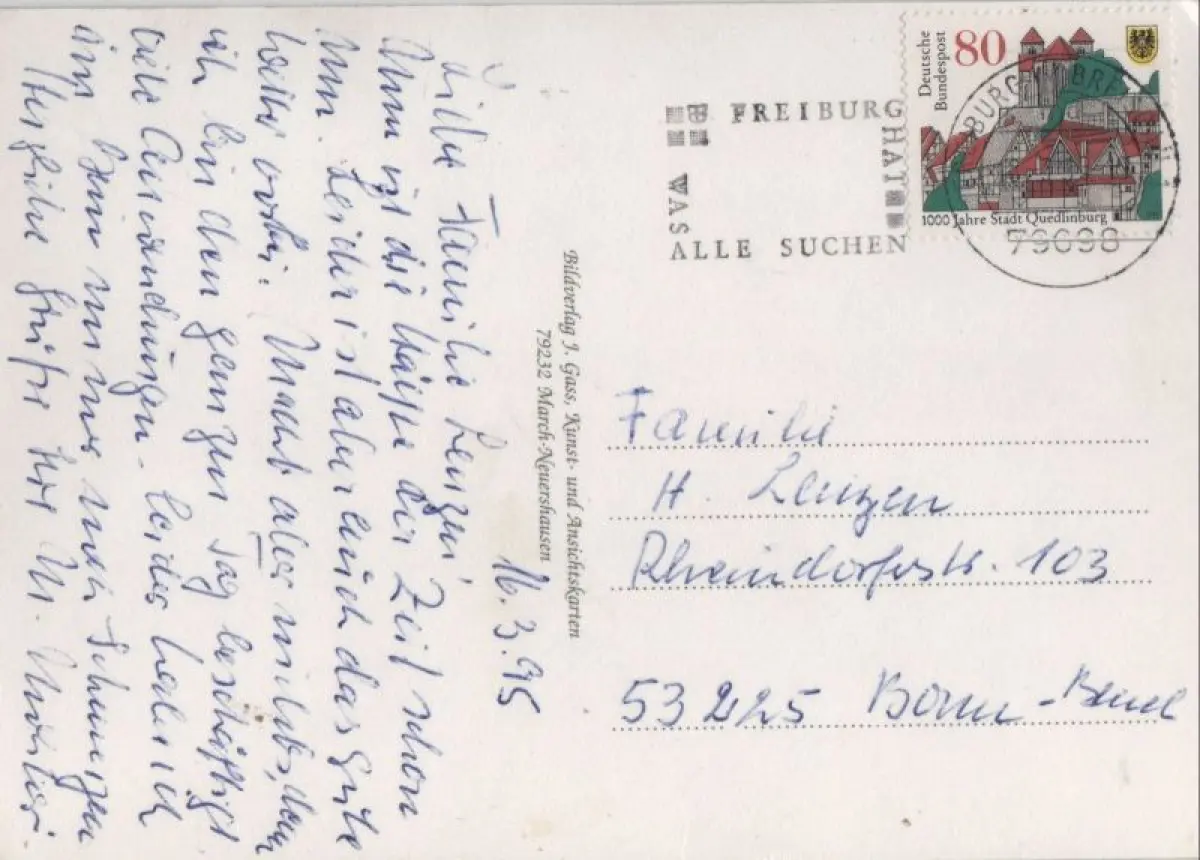 16. 3. 95
Liebe Familie Lenzen!
Nun ist die Hälfte der Zeit schon
um. Leider ist aber auch das gute
Wetter vorbei. Macht aber nichts, denn
ich bin den ganzen Tag beschäftigt
viele Anwendungen. Leider habe ich
immer noch Schmerzen
Herzliche Grüße Ihre
Bildverlag J. Gass, Kunst- und Ansichtskarten
79232 March-Neuershausen
FREIBURG
HAT
WAS
ALLE SUCHEN
Deutsche
Bundespost
80
1000 Jahre Stadt Quedlinburg
79098
Familie
H. Lenzen
Rheindorferstr. 103
53225 Bonn-Beuel